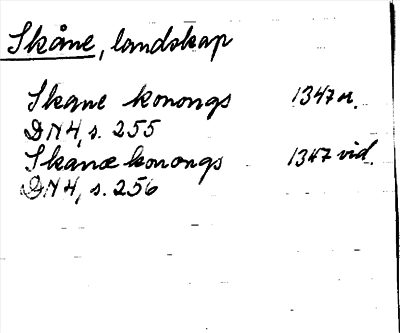 Skåne, landskap
Skane konongs 1347 n.
DN 4, s. 255
Skanæ konongs 1347 vid.
DN 4, s. 256